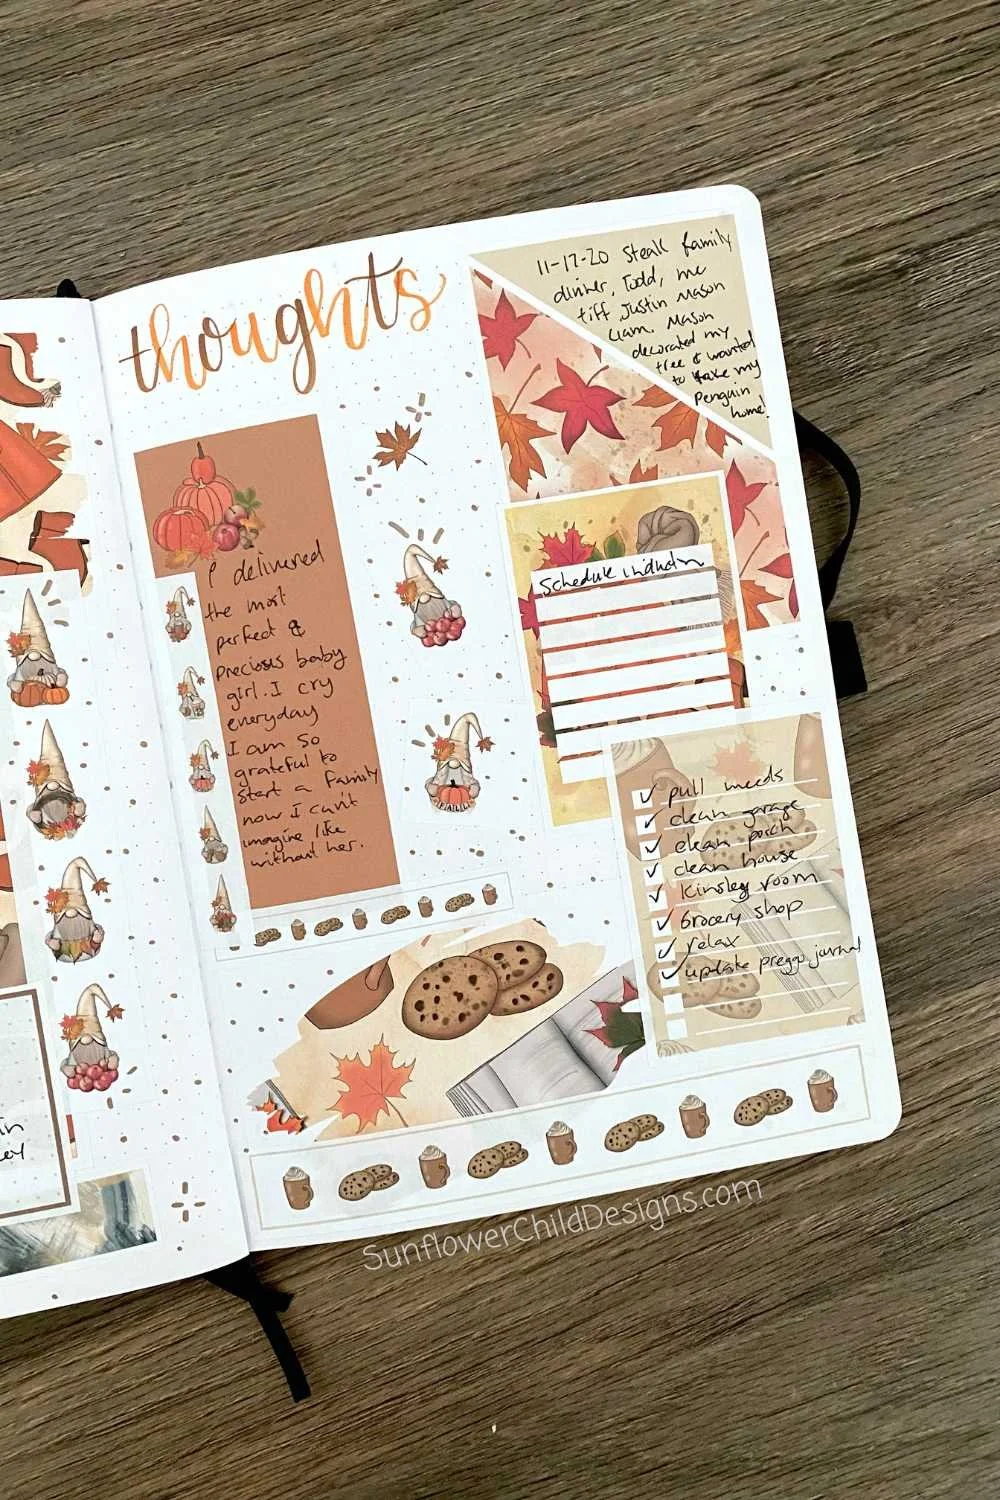 thoughts
11-17-20 Steak family
dinner, Todd, me
tiff Justin Mason
Liam. Mason
decorated my
tree & wanted
to take my
Penguin
home!
I delivered
the most
perfect &
precious baby
girl. I cry
everyday
I am so
grateful to
start a family
now I can't
imagine life
without her.
Schedule induction
FALL
pull weeds
clean garage
clean porch
clean house
Kinsley room
Grocery shop
relax
update preggo journal
SunflowerChildDesigns.com